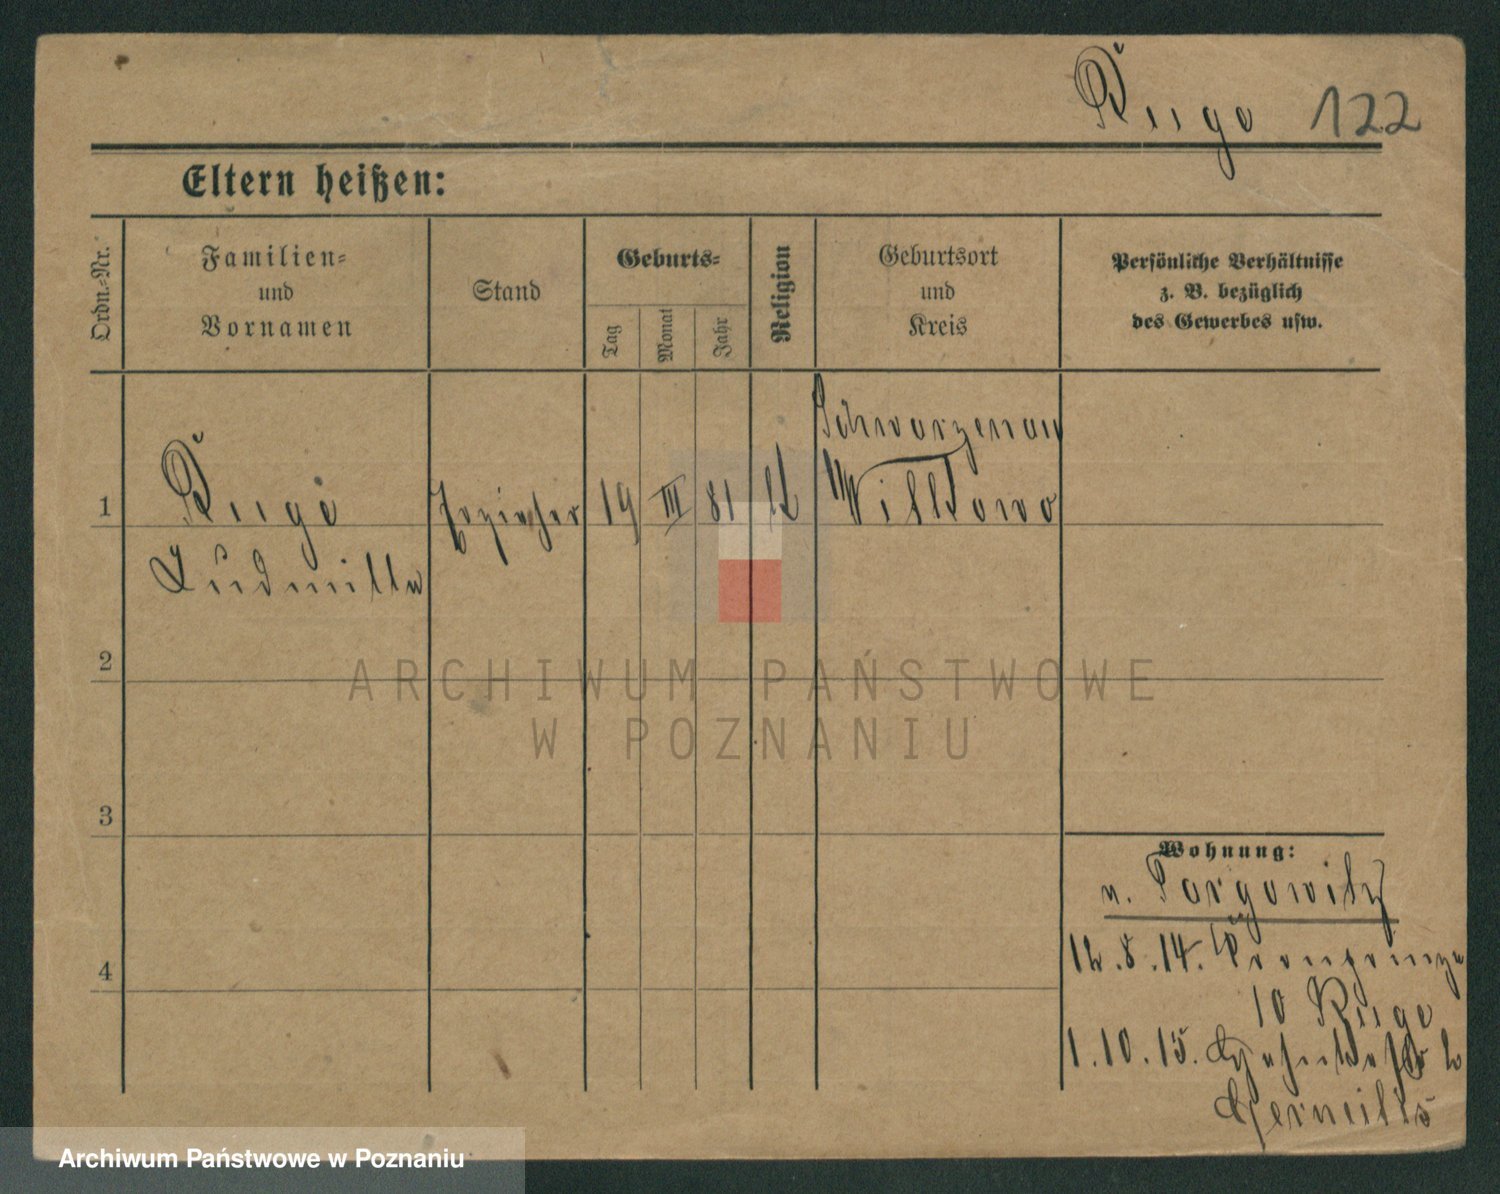 Ruge 122
Eltern heißen:
Ordn.-Nr.
Familien-
und
Vornamen
Stand
Geburts-
Tag
Monat
Jahr
Religion
Geburtsort
und
Kreis
Persönliche Verhältnisse
z. B. bezüglich
des Gewerbes usw.
Schwarzenau
1 Ruge 19 III 81 Witkowo
Ludmilla
2
ARCHIWUM PAŃSTWOWE
W POZNANIU
3
Wohnung:
v. Pargowitz
4
12.8.14. Kronprinz
10 Ruge
1.10.15.
Archiwum Państwowe w Poznaniu